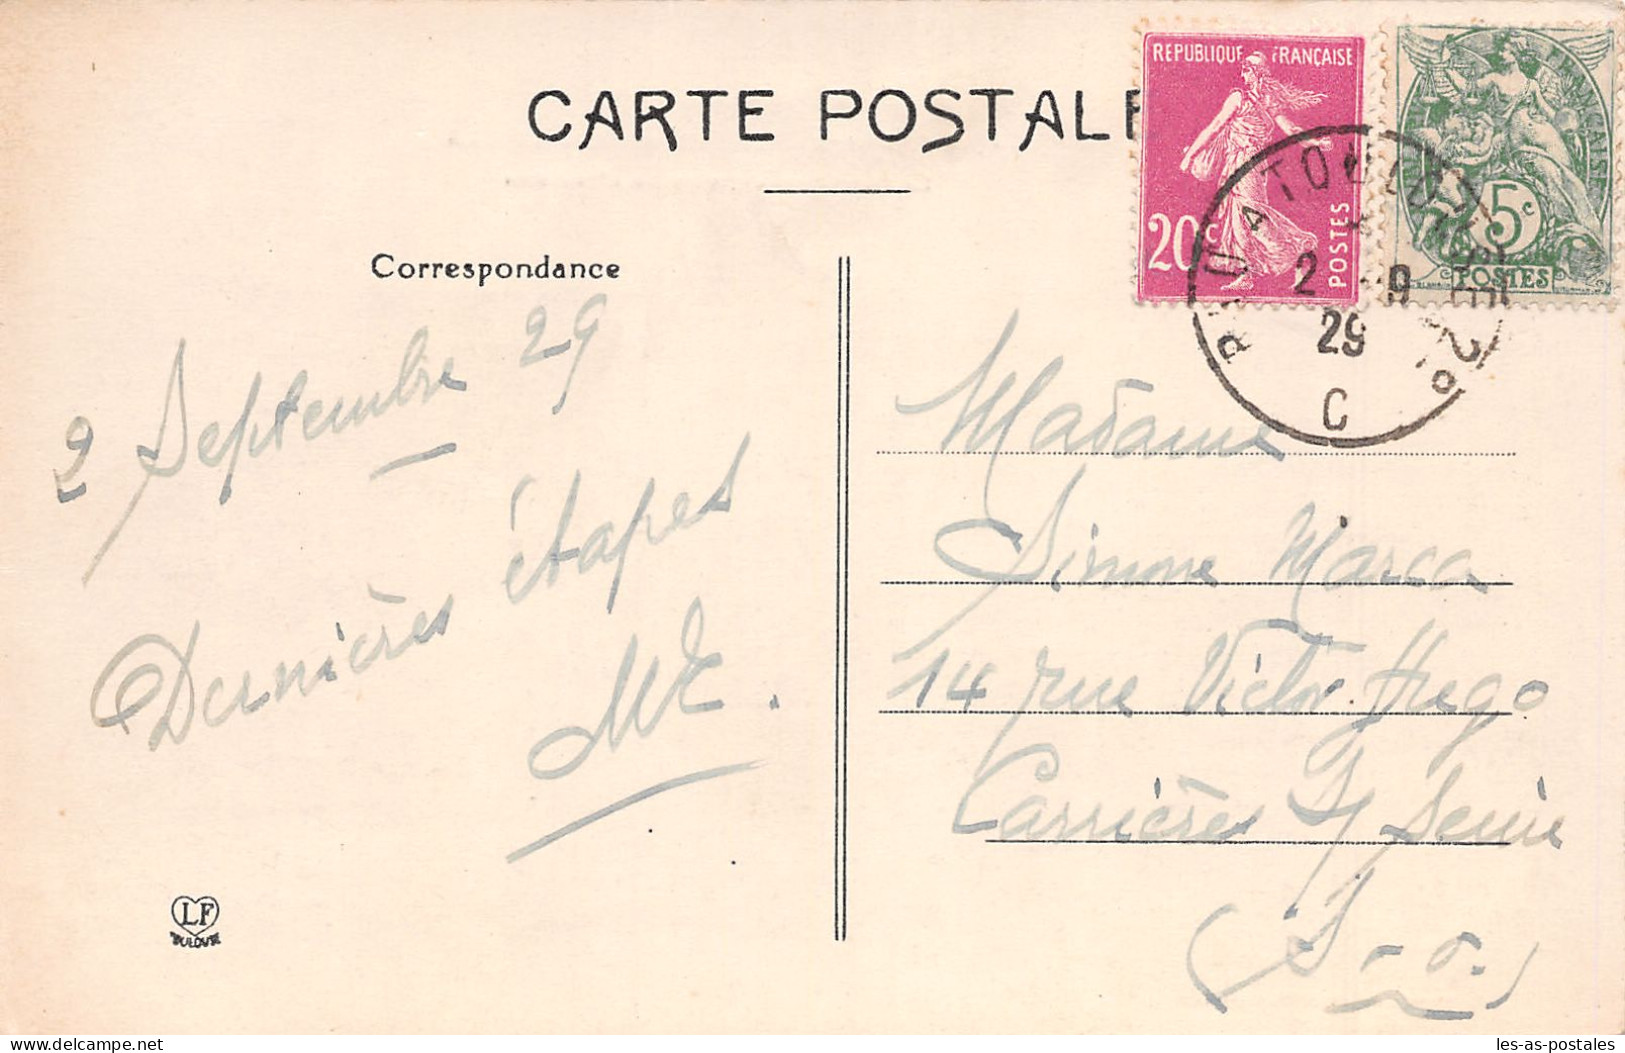 CARTE POSTALE
REPUBLIQUE FRANÇAISE
20c
POSTES
5c
POSTES
A TOULOUSE
2 - 9
29
C
Correspondance
2 Septembre 29
Dernières étapes
Madame
Simone Marca
14 rue Victor Hugo
Carrières s/ Seine
(S-O.)
LF
TOULOUSE
les-as-postales
delcampe.net